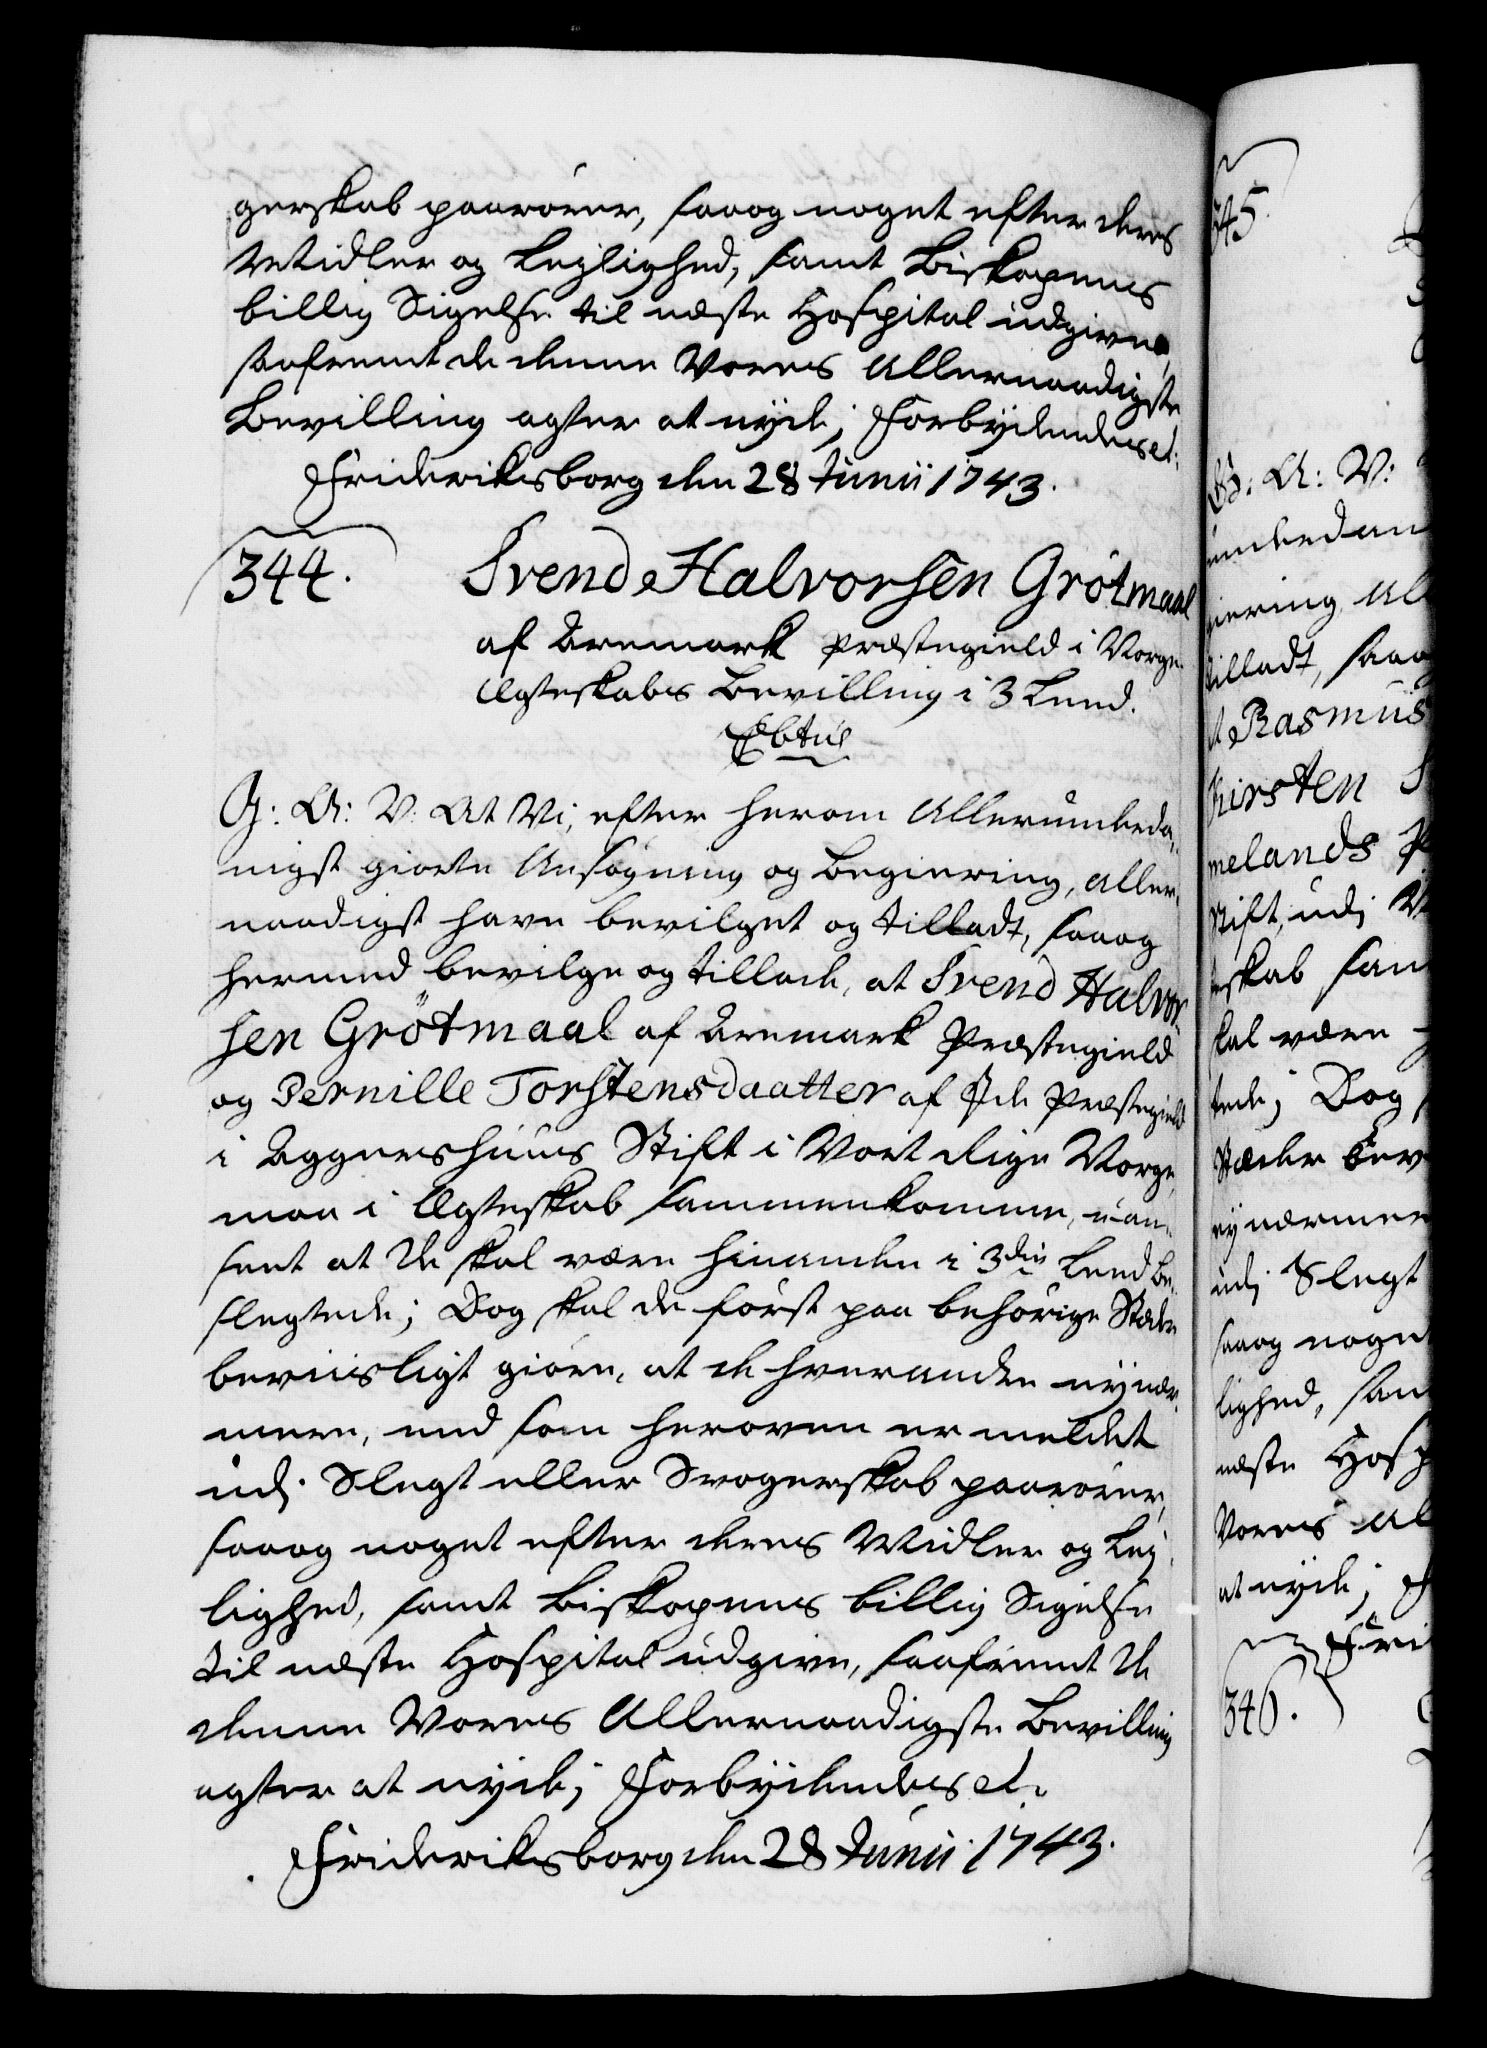 gerskab paarörer, saaog noget efter deres
Midler og Lejlighed, samt Biskopens
billig Sigelse til næste Hospital udgive,
saafremt de denne Vores Allernaadigste
Bevilling agter at nyde; Forbydendes et:
Frideriksborg den 28 Junii 1743.
344.
Svend Halvorsen Grötmaal
af Aremark Præstegield i Norge
Ægteskabs Bevilling i 3 Leed.
G: A: V: At Vi, efter herom Allerunderda-
nigst giorte Ansögning og Begiering, aller-
naadigst have bevilget og tilladt, saaog
hermed bevilge og tillade, at Svend Halvor-
sen Grötmaal af Aremark Præstegield
og Pernille Torstensdaatter af Ide Præstegield
i Aggershuus Stift i Vort Rige Norge
maa i Ægteskab sammenkomme, uan-
seet at de skal være hinanden i 3die Leed be-
slegtede; Dog skal de först paa behörige Stæder
beviisligt giöre, at de hverandre ey nær-
mere, end som heroven er meldet
udj Slegt eller Svogerskab paarörer,
saaog noget efter deres Midler og Lej-
lighed, samt Biskopens billig Sigelse
til næste Hospital udgive, saafremt de
denne Vores Allernaadigste Bevilling
agter at nyde; Forbydendes et:
Frideriksborg den 28 Junii 1743.
345.
G: A: V:
underdan
giering, All
tilladt, saaog
at Rasmus
Kirsten
melands P
Stift, udj
skab sam
skal være
tede; Dog
Stæder bev
ey nærmere
udj Slegt
saaog noget
lighed, sam
næste Hosp
Vores Al
at nyde; F
Fri
346.